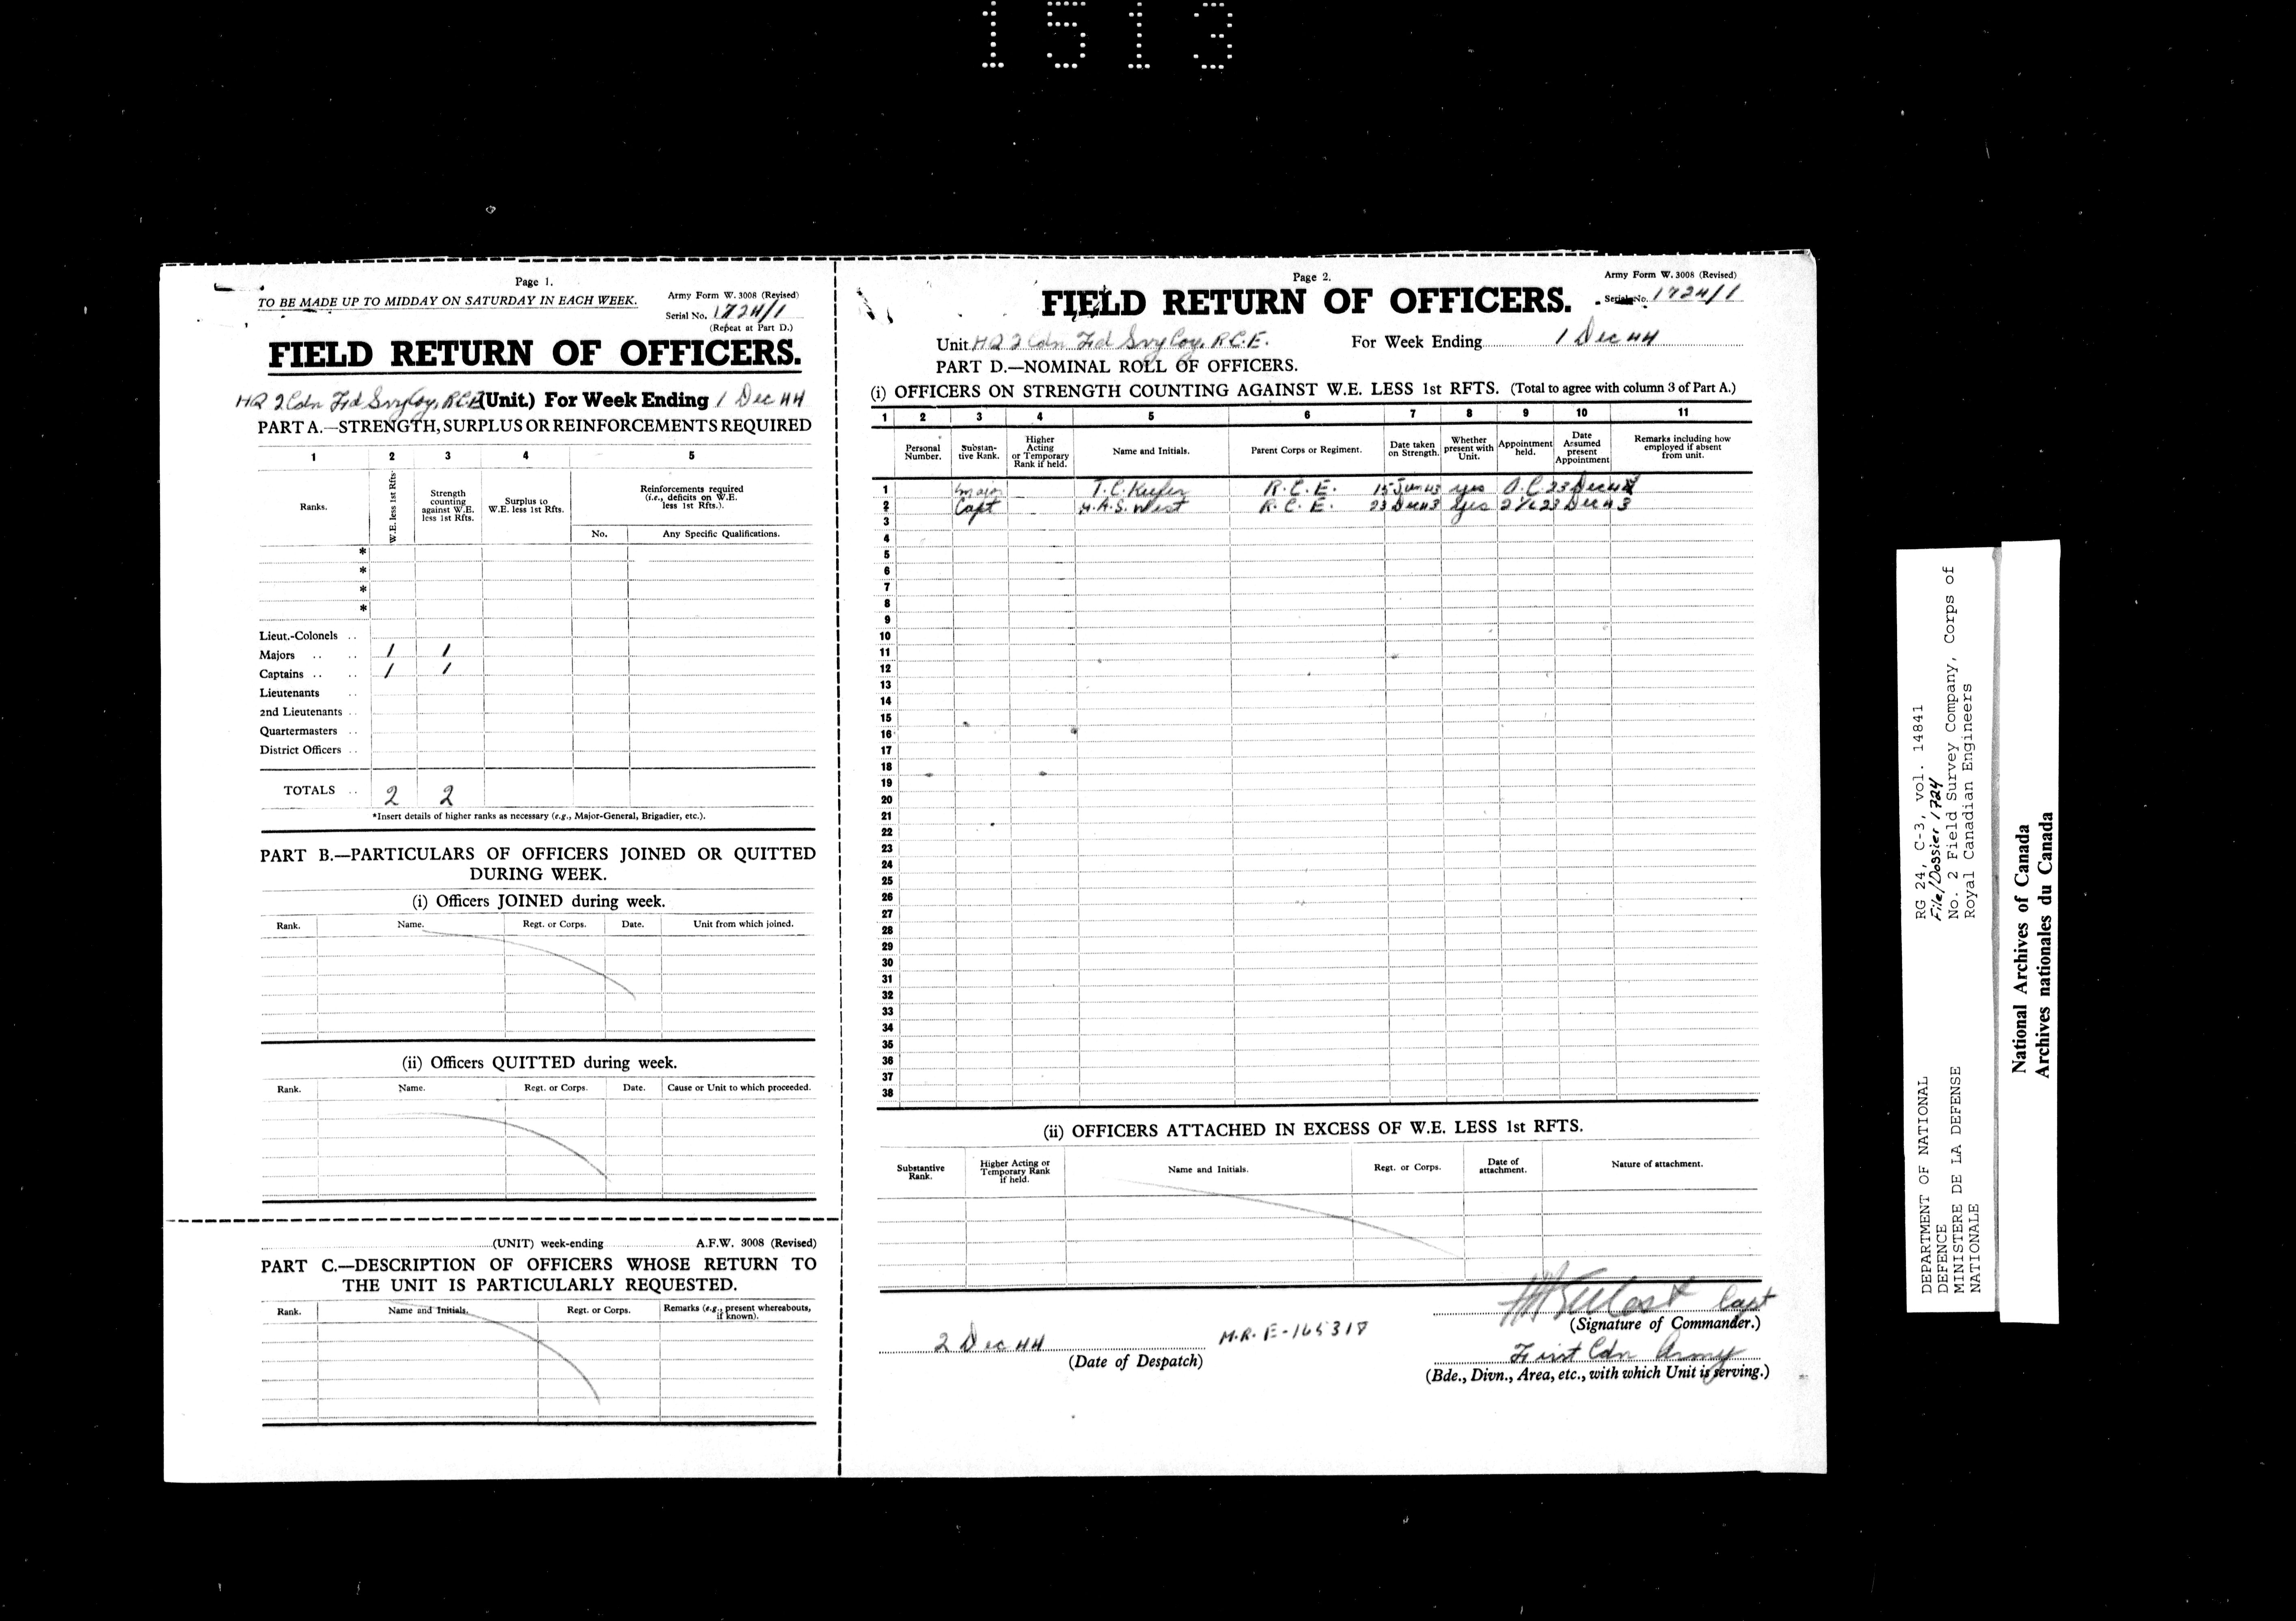 1513
Page 1.
TO BE MADE UP TO MIDDAY ON SATURDAY IN EACH WEEK.
Army Form W. 3008 (Revised)
Serial No. 1724/1
(Repeat at Part D.)
FIELD RETURN OF OFFICERS.
HQ 2 Cdn Fd Svy Coy, RCE (Unit.) For Week Ending 1 Dec 44
PART A.—STRENGTH, SURPLUS OR REINFORCEMENTS REQUIRED
1 2 3 4 5
Ranks. W.E. less 1st Rfts. Strength counting against W.E. less 1st Rfts. Surplus to W.E. less 1st Rfts. Reinforcements required (i.e., deficits on W.E. less 1st Rfts.).
No. Any Specific Qualifications.
*
*
*
*
Lieut.-Colonels ..
Majors .. .. 1 1
Captains .. .. 1 1
Lieutenants ..
2nd Lieutenants ..
Quartermasters ..
District Officers ..
TOTALS .. 2 2
*Insert details of higher ranks as necessary (e.g., Major-General, Brigadier, etc.).
PART B.—PARTICULARS OF OFFICERS JOINED OR QUITTED
DURING WEEK.
(i) Officers JOINED during week.
Rank. Name. Regt. or Corps. Date. Unit from which joined.
(ii) Officers QUITTED during week.
Rank. Name. Regt. or Corps. Date. Cause or Unit to which proceeded.
(UNIT) week-ending A.F.W. 3008 (Revised)
PART C.—DESCRIPTION OF OFFICERS WHOSE RETURN TO
THE UNIT IS PARTICULARLY REQUESTED.
Rank. Name and Initials. Regt. or Corps. Remarks (e.g., present whereabouts, if known).
Page 2.
Army Form W. 3008 (Revised)
FIELD RETURN OF OFFICERS.
Serial No. 1724/1
Unit HQ 2 Cdn Fd Svy Coy, R.C.E. For Week Ending 1 Dec 44
PART D.—NOMINAL ROLL OF OFFICERS.
(i) OFFICERS ON STRENGTH COUNTING AGAINST W.E. LESS 1st RFTS. (Total to agree with column 3 of Part A.)
1 2 3 4 5 6 7 8 9 10 11
Personal Number. Substantive Rank. Higher Acting or Temporary Rank if held. Name and Initials. Parent Corps or Regiment. Date taken on Strength. Whether present with Unit. Appointment held. Date Assumed present Appointment Remarks including how employed if absent from unit.
1 Major T.C. Keefer R.C.E. 15 Jun 43 yes O.C. 23 Dec
2 Capt H.A.S. West R.C.E. 23 Dec 43 yes 2 i/c 23 Dec 43
3
4
5
6
7
8
9
10
11
12
13
14
15
16
17
18
19
20
21
22
23
24
25
26
27
28
29
30
31
32
33
34
35
36
37
38
(ii) OFFICERS ATTACHED IN EXCESS OF W.E. LESS 1st RFTS.
Substantive Rank. Higher Acting or Temporary Rank if held. Name and Initials. Regt. or Corps. Date of attachment. Nature of attachment.
HASWest Capt
(Signature of Commander.)
2 Dec 44 M.R. E-165318
(Date of Despatch)
First Cdn Army
(Bde., Divn., Area, etc., with which Unit is serving.)
DEPARTMENT OF NATIONAL
DEFENCE
MINISTERE DE LA DEFENSE
NATIONALE
RG 24, C-3, vol. 14841
File/Dossier 1724
No. 2 Field Survey Company, Corps of
Royal Canadian Engineers
National Archives of Canada
Archives nationales du Canada